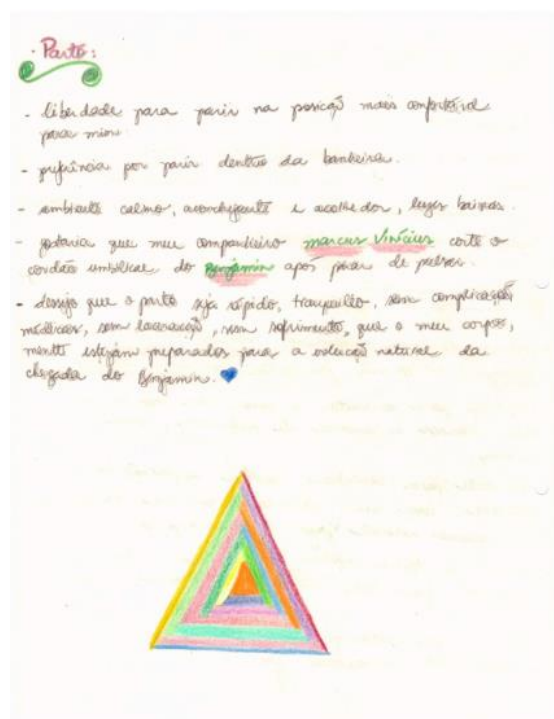 · Parto:
- liberdade para parir na posição mais confortável
para mim
- preferência por parir dentro da banheira.
- ambiente calmo, aconchegante e acolhedor, luzes baixas.
- gostaria que meu companheiro Marcus Vinícius corte o
cordão umbilical do Benjamin após parar de pulsar.
- desejo que o parto seja rápido, tranquilo, sem complicações
médicas, sem laceração, sem sofrimento, que o meu corpo,
mente estejam preparados para a evolução natural da
chegada do Benjamin.